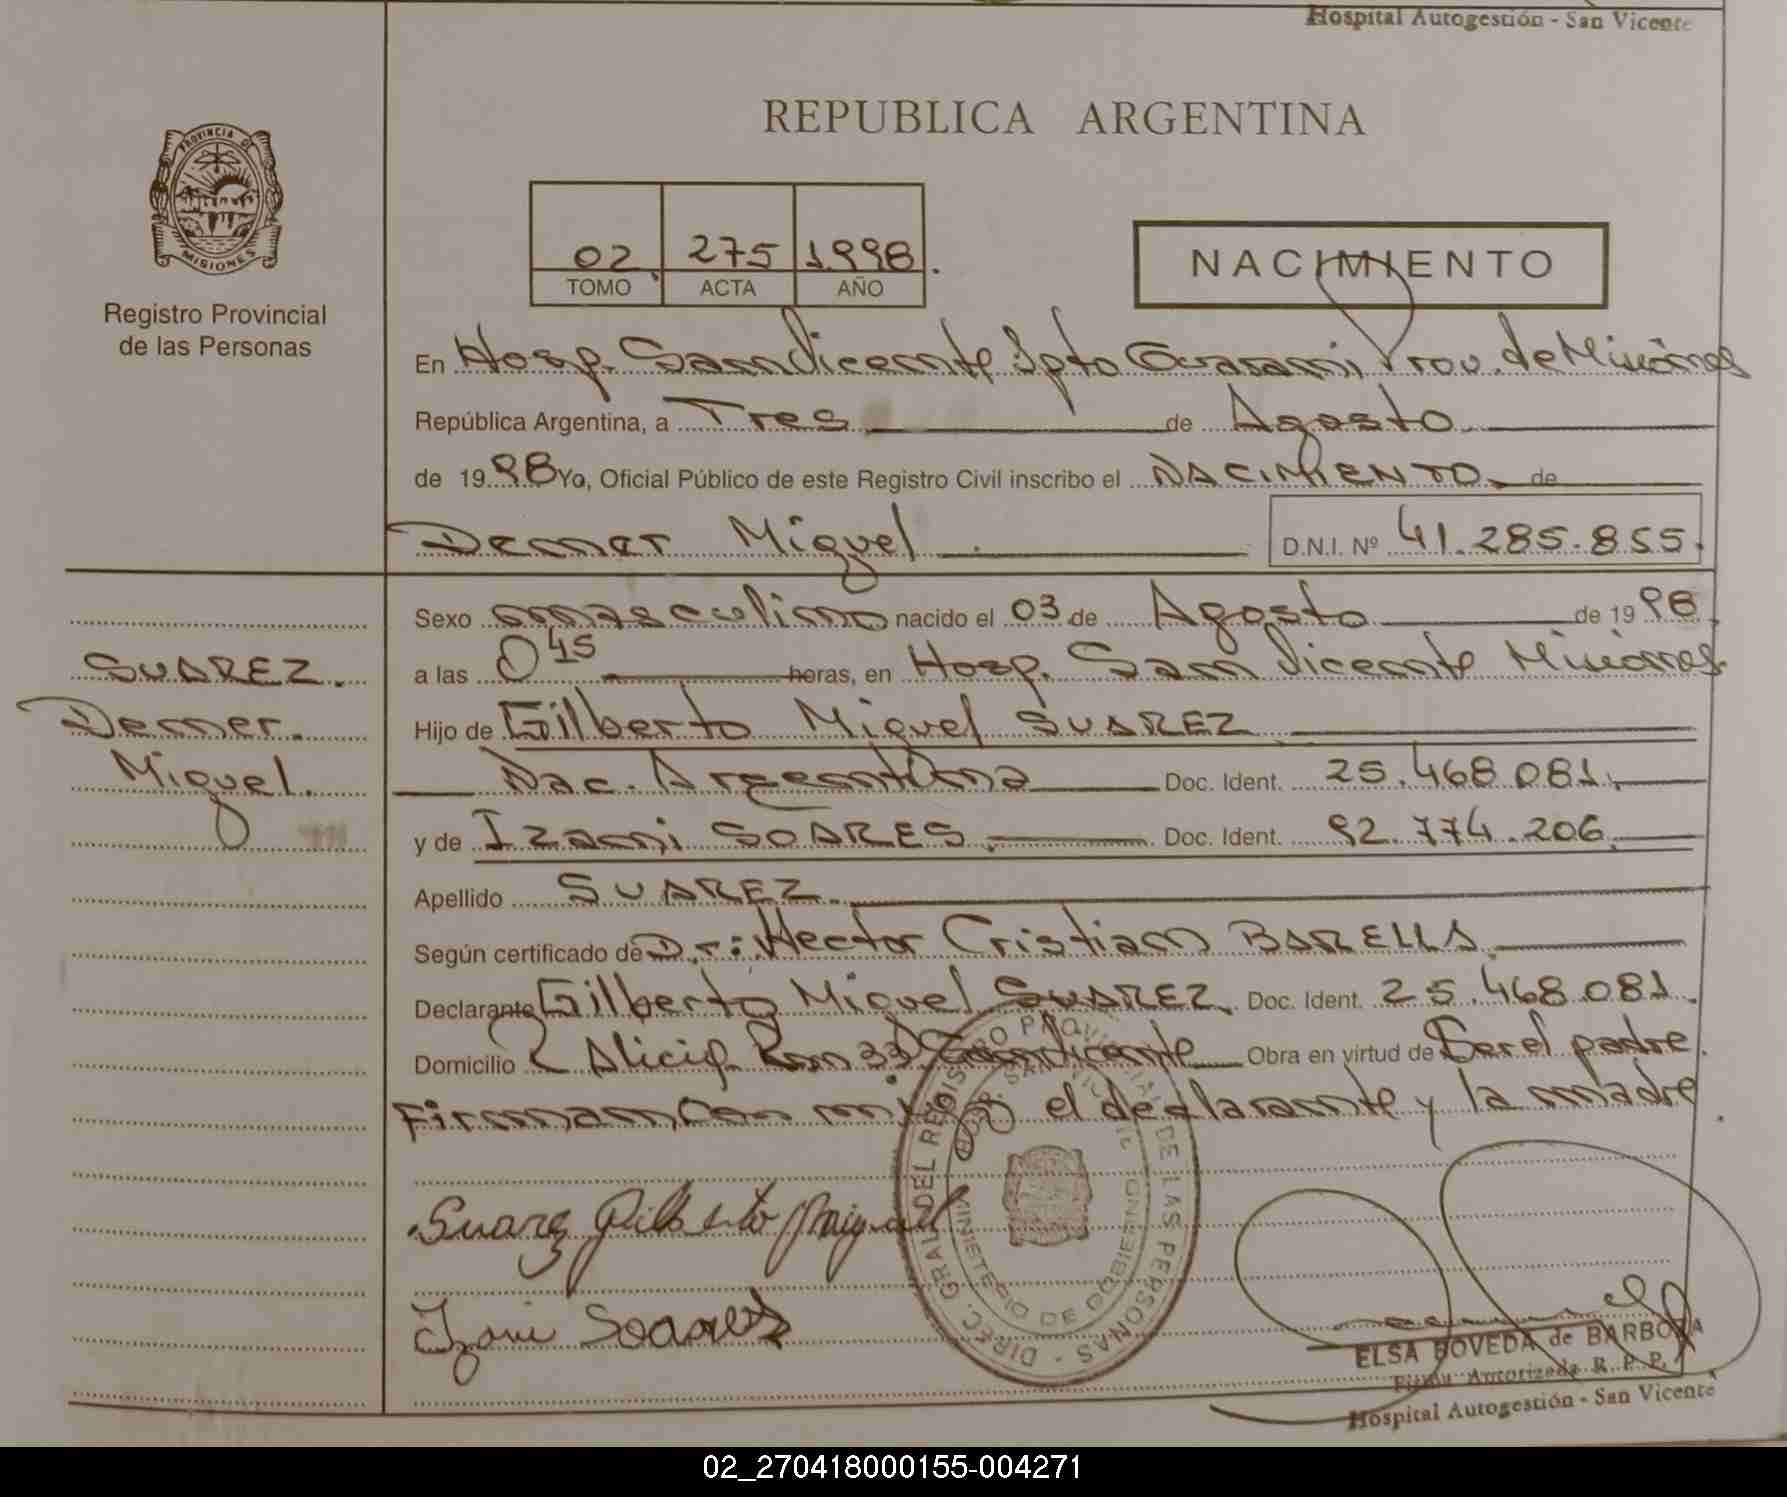 Hospital Autogestión - San Vicente
PROVINCIA DE
MISIONES
Registro Provincial
de las Personas
REPUBLICA ARGENTINA
02 275 1998
TOMO ACTA AÑO
NACIMIENTO
En Hosp. San Vicente Dpto Guarani, Prov. de Misiones
República Argentina, a Tres de Agosto
de 1998 Yo, Oficial Público de este Registro Civil inscribo el NACIMIENTO de
Demer Miguel D.N.I. Nº 41.285.855.
Sexo masculino nacido el 03 de Agosto de 1998
SUAREZ.
a las 0 45 horas, en Hosp. San Vicente Misiones.
Demer.
Hijo de Gilberto Miguel SUAREZ
Miguel.
Nac. Argentina Doc. Ident. 25.468.081.
y de Izani SOARES. Doc. Ident. 92.774.206.
Apellido SUAREZ.
Según certificado de Dr: Hector Cristian BARELLA
Declarante Gilberto Miguel SUAREZ. Doc. Ident. 25.468.081.
Domicilio Alicia Km 33 San Vicente Obra en virtud de Ser el padre.
Firman con migo el declarante y la madre.
Suarez Gilberto Miguel
Izani Soares
DIREC. GRAL. DEL REGISTRO PROVINCIAL DE LAS PERSONAS
MINISTERIO DE GOBIERNO
ELSA BOVEDA de BARBOZA
Firma Autorizada R. P. P.
Hospital Autogestión - San Vicente
02_270418000155-004271